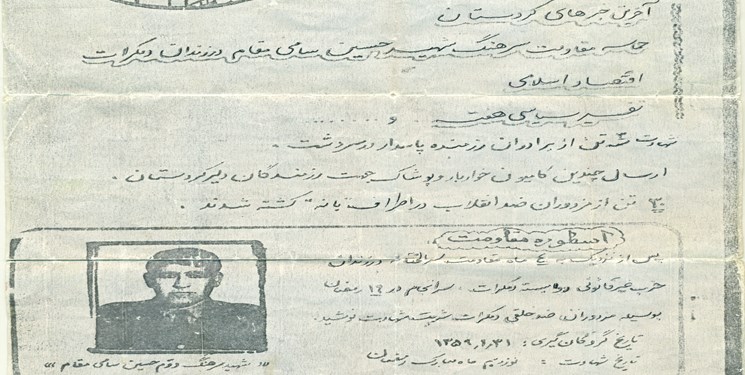 آخرین خبرهای کردستان
حماسه مقاومت سرهنگ شهید حسین سامی مقام در زندان دمکرات
اقتصاد اسلامی
تفسیر سیاسی هفته ........ و ........
شهادت تن از برادران رزمنده پاسدار در سردشت .
ارسال چندین کامیون خواربار و پوشاک جهت رزمندگان دلیر کردستان .
۳۰ تن از مزدوران ضد انقلاب در اطراف بانه کشته شدند .
اسطوره مقاومت
پس از نزدیک به ۴ ماه مقاومت در زندان
حزب غیرقانونی و وابسته دمکرات ، سرانجام در ۱۹ رمضان
بوسیله مزدوران ضد خلقی دمکرات شربت شهادت نوشید .
تاریخ گروگان گیری : ۱۳۵۹/۱/۳۱
تاریخ شهادت : نوزدهم ماه مبارک رمضان
شهید سرهنگ دوم حسین سامی مقام